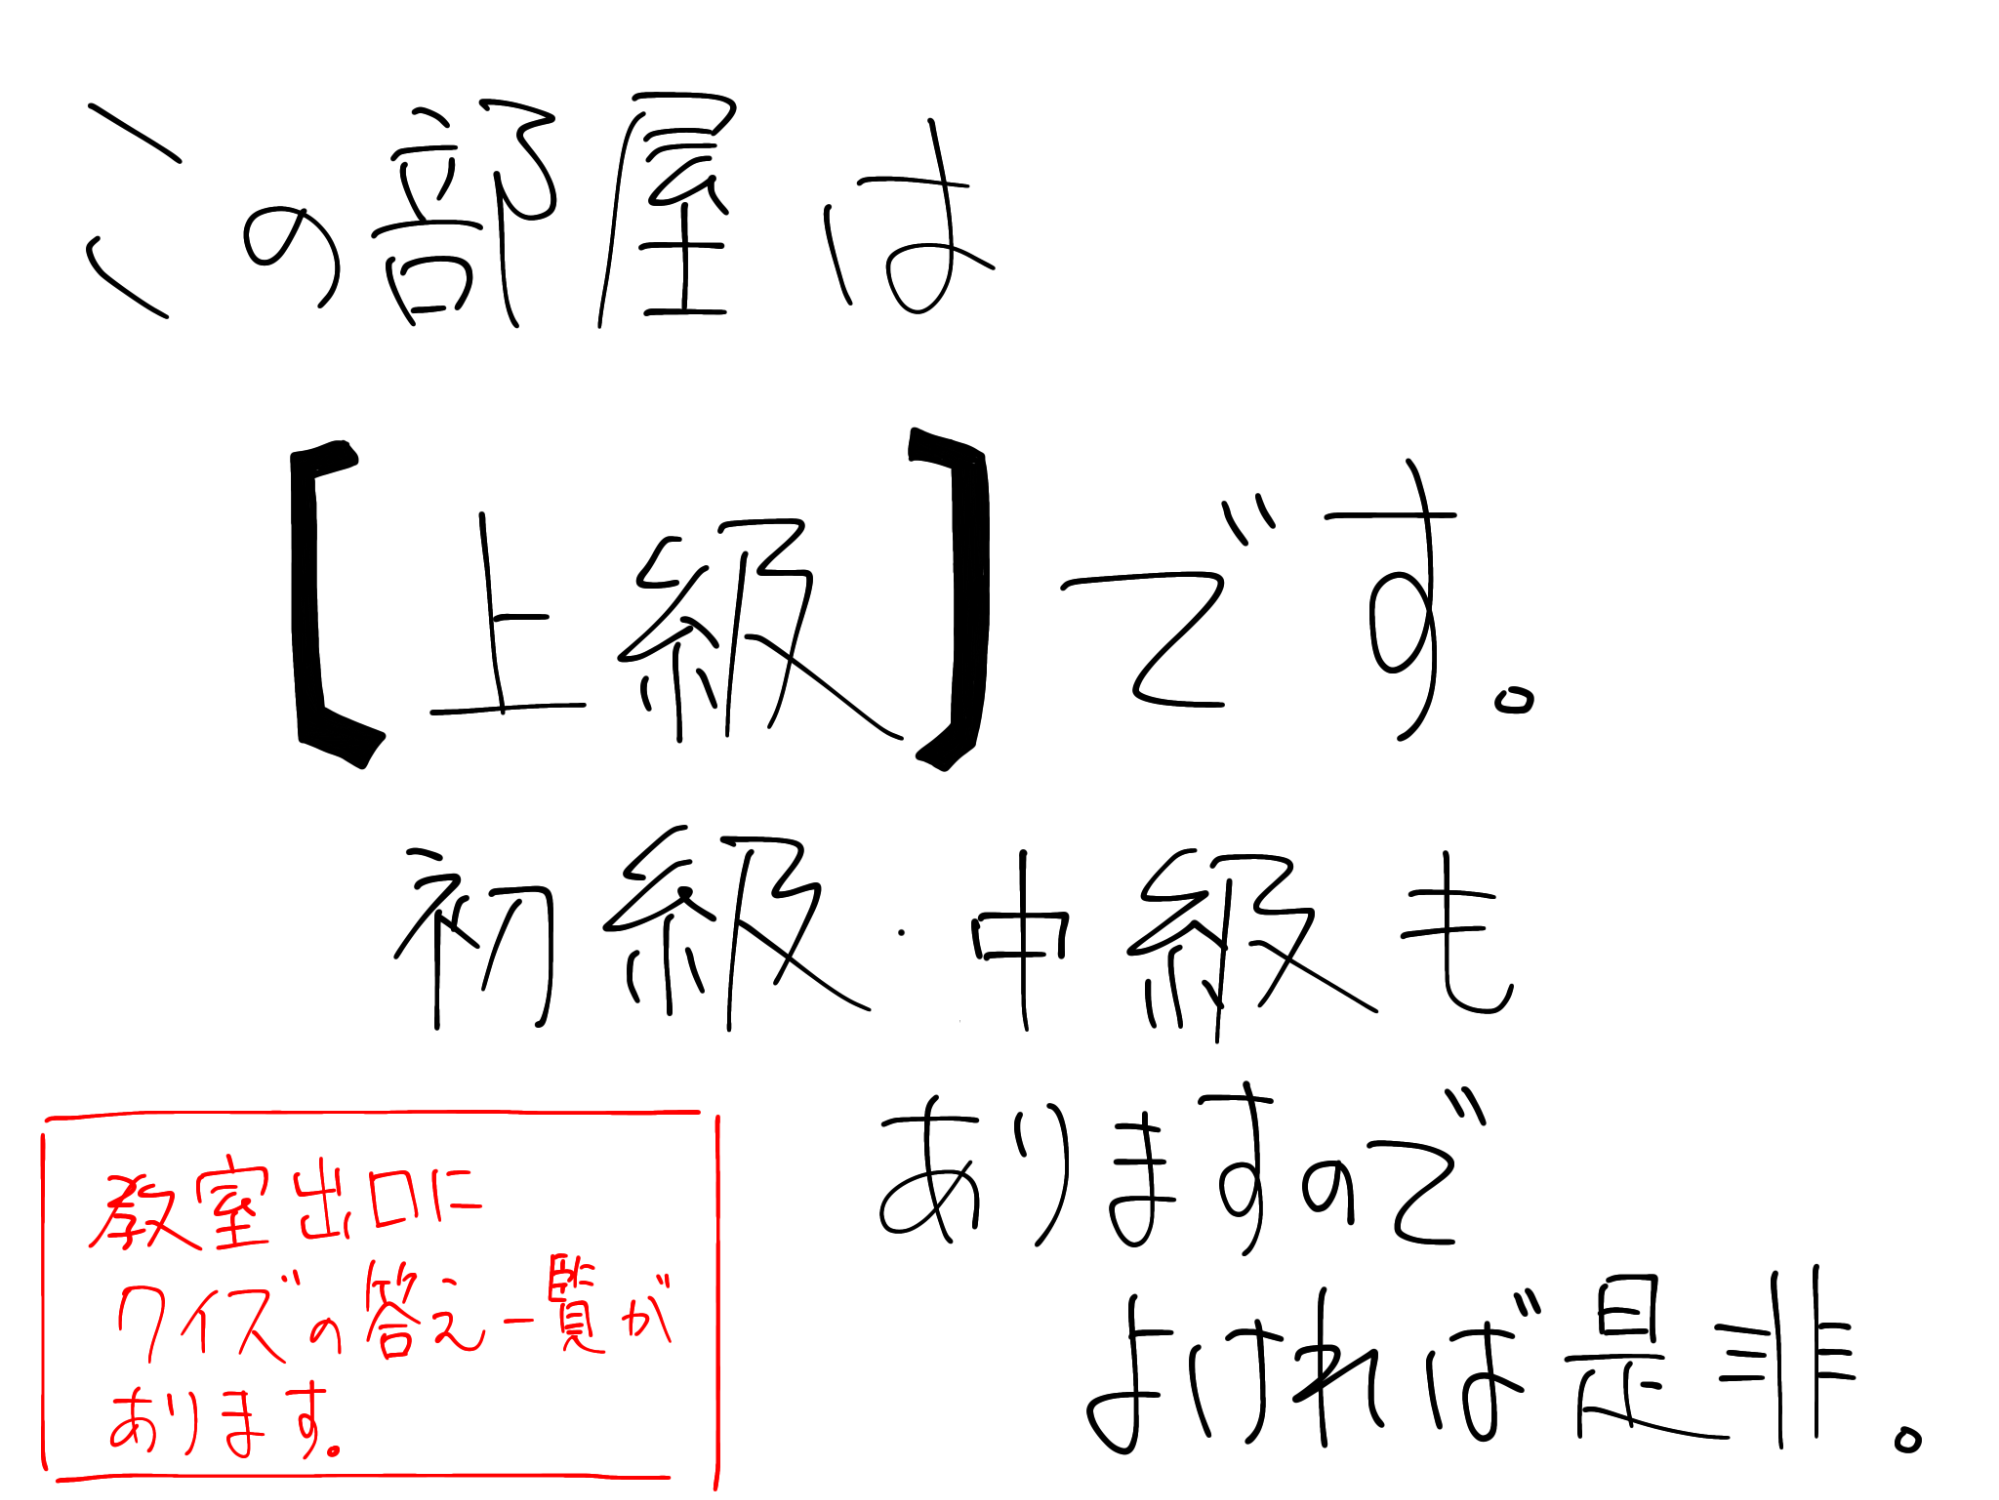 この部屋は
[上級]です。
初級・中級も
ありますので
よければ是非。
教室出口に
クイズの答え一覧が
あります。